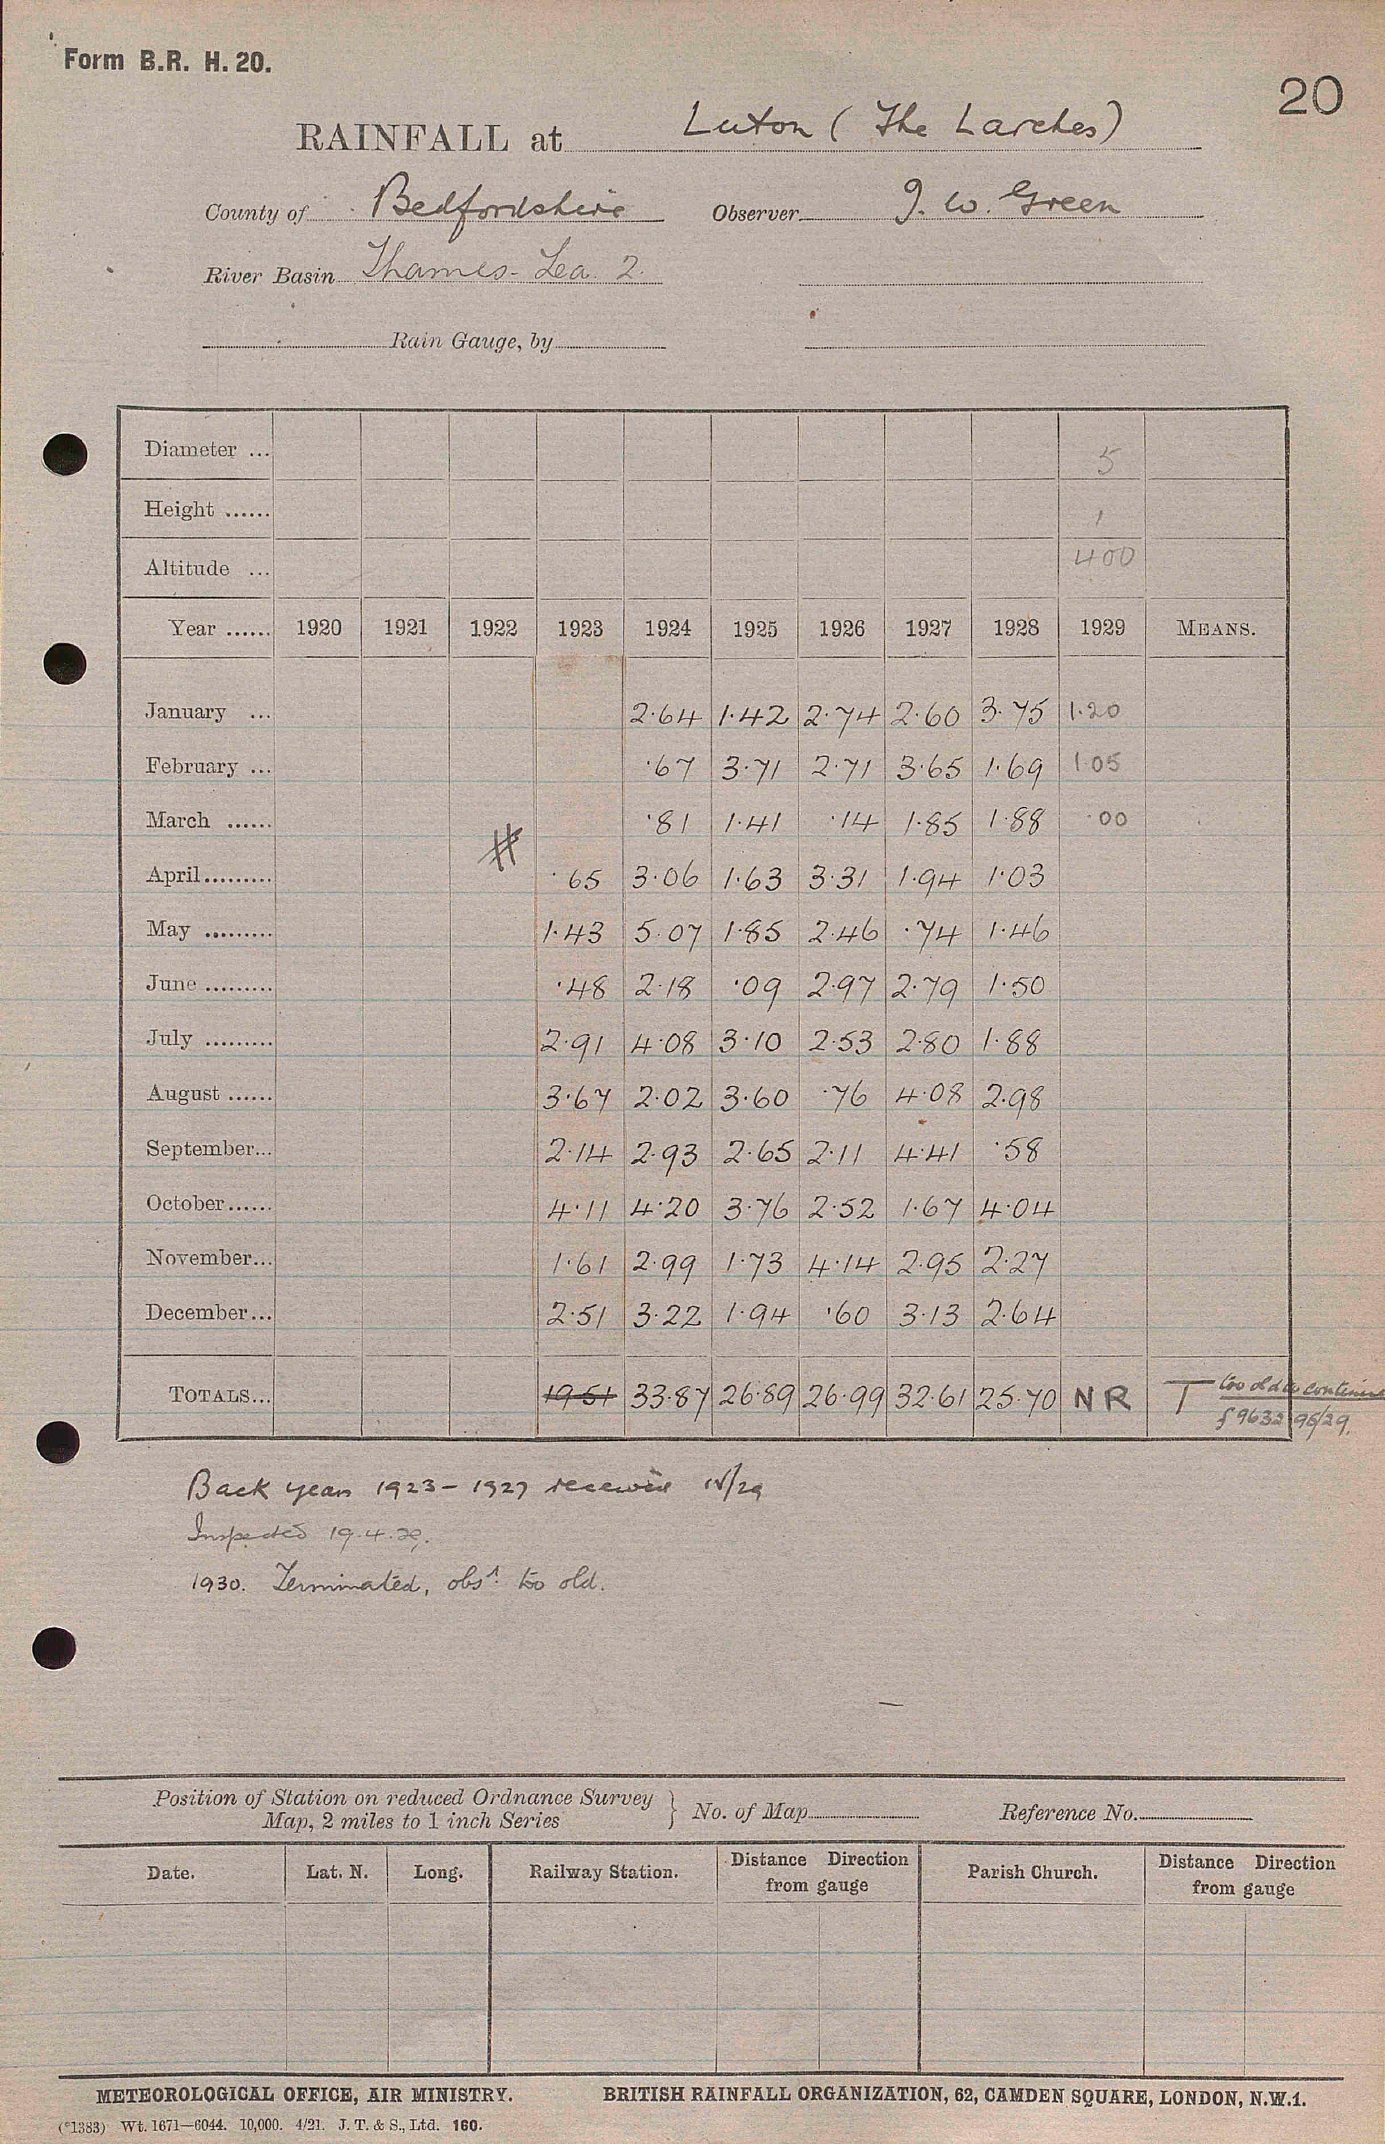 Form B.R. H. 20.
20
RAINFALL at Luton (The Larches)
County of Bedfordshire Observer J. W. Green
River Basin Thames - Lea. 2.
Rain Gauge, by
Diameter ... 5
Height ...... 1
Altitude ... 400
Year ...... 1920 1921 1922 1923 1924 1925 1926 1927 1928 1929 MEANS.
January ... 2.64 1.42 2.74 2.60 3.75 1.20
February ... .67 3.71 2.71 3.65 1.69 1.05
March ...... .81 1.41 .14 1.85 1.88 .00
#
April......... .65 3.06 1.63 3.31 1.94 1.03
May ......... 1.43 5.07 1.85 2.46 .74 1.46
June ......... .48 2.18 .09 2.97 2.79 1.50
July ......... 2.91 4.08 3.10 2.53 2.80 1.88
August ...... 3.67 2.02 3.60 .76 4.08 2.98
September... 2.14 2.93 2.65 2.11 4.41 .58
October...... 4.11 4.20 3.76 2.52 1.67 4.04
November... 1.61 2.99 1.73 4.14 2.95 2.27
December... 2.51 3.22 1.94 .60 3.13 2.64
TOTALS... 19.51 33.87 26.89 26.99 32.61 25.70 NR T too old to continue
9632 /29.
Back years 1923 - 1927 received IV/29
Inspected 19.4.29.
1930. Terminated, obsr. too old.
Position of Station on reduced Ordnance Survey
Map, 2 miles to 1 inch Series } No. of Map Reference No.
Date. Lat. N. Long. Railway Station. Distance Direction from gauge Parish Church. Distance Direction from gauge
METEOROLOGICAL OFFICE, AIR MINISTRY. BRITISH RAINFALL ORGANIZATION, 62, CAMDEN SQUARE, LONDON, N.W.1.
(*1383) Wt. 1671—6044. 10,000. 4/21. J. T. & S., Ltd. 160.